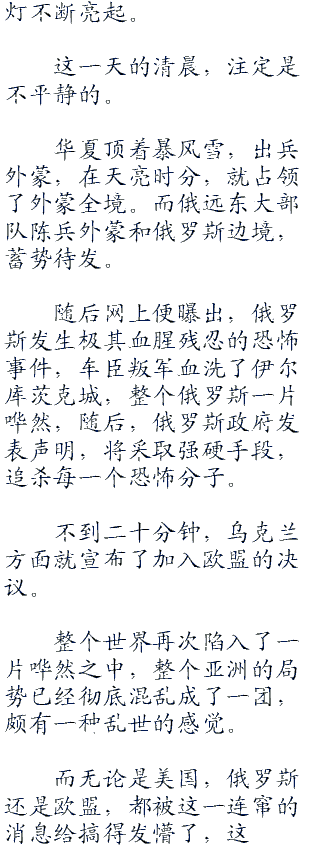 灯不断亮起。
这一天的清晨，注定是
不平静的。
华夏顶着暴风雪，出兵
外蒙，在天亮时分，就占领
了外蒙全境。而俄远东大部
队陈兵外蒙和俄罗斯边境，
蓄势待发。
随后网上便曝出，俄罗
斯发生极其血腥残忍的恐怖
事件，车臣叛军血洗了伊尔
库茨克城，整个俄罗斯一片
哗然，随后，俄罗斯政府发
表声明，将采取强硬手段，
追杀每一个恐怖分子。
不到二十分钟，乌克兰
方面就宣布了加入欧盟的决
议。
整个世界再次陷入了一
片哗然之中，整个亚洲的局
势已经彻底混乱成了一团，
颇有一种乱世的感觉。
而无论是美国，俄罗斯
还是欧盟，都被这一连窜的
消息给搞得发懵了，这